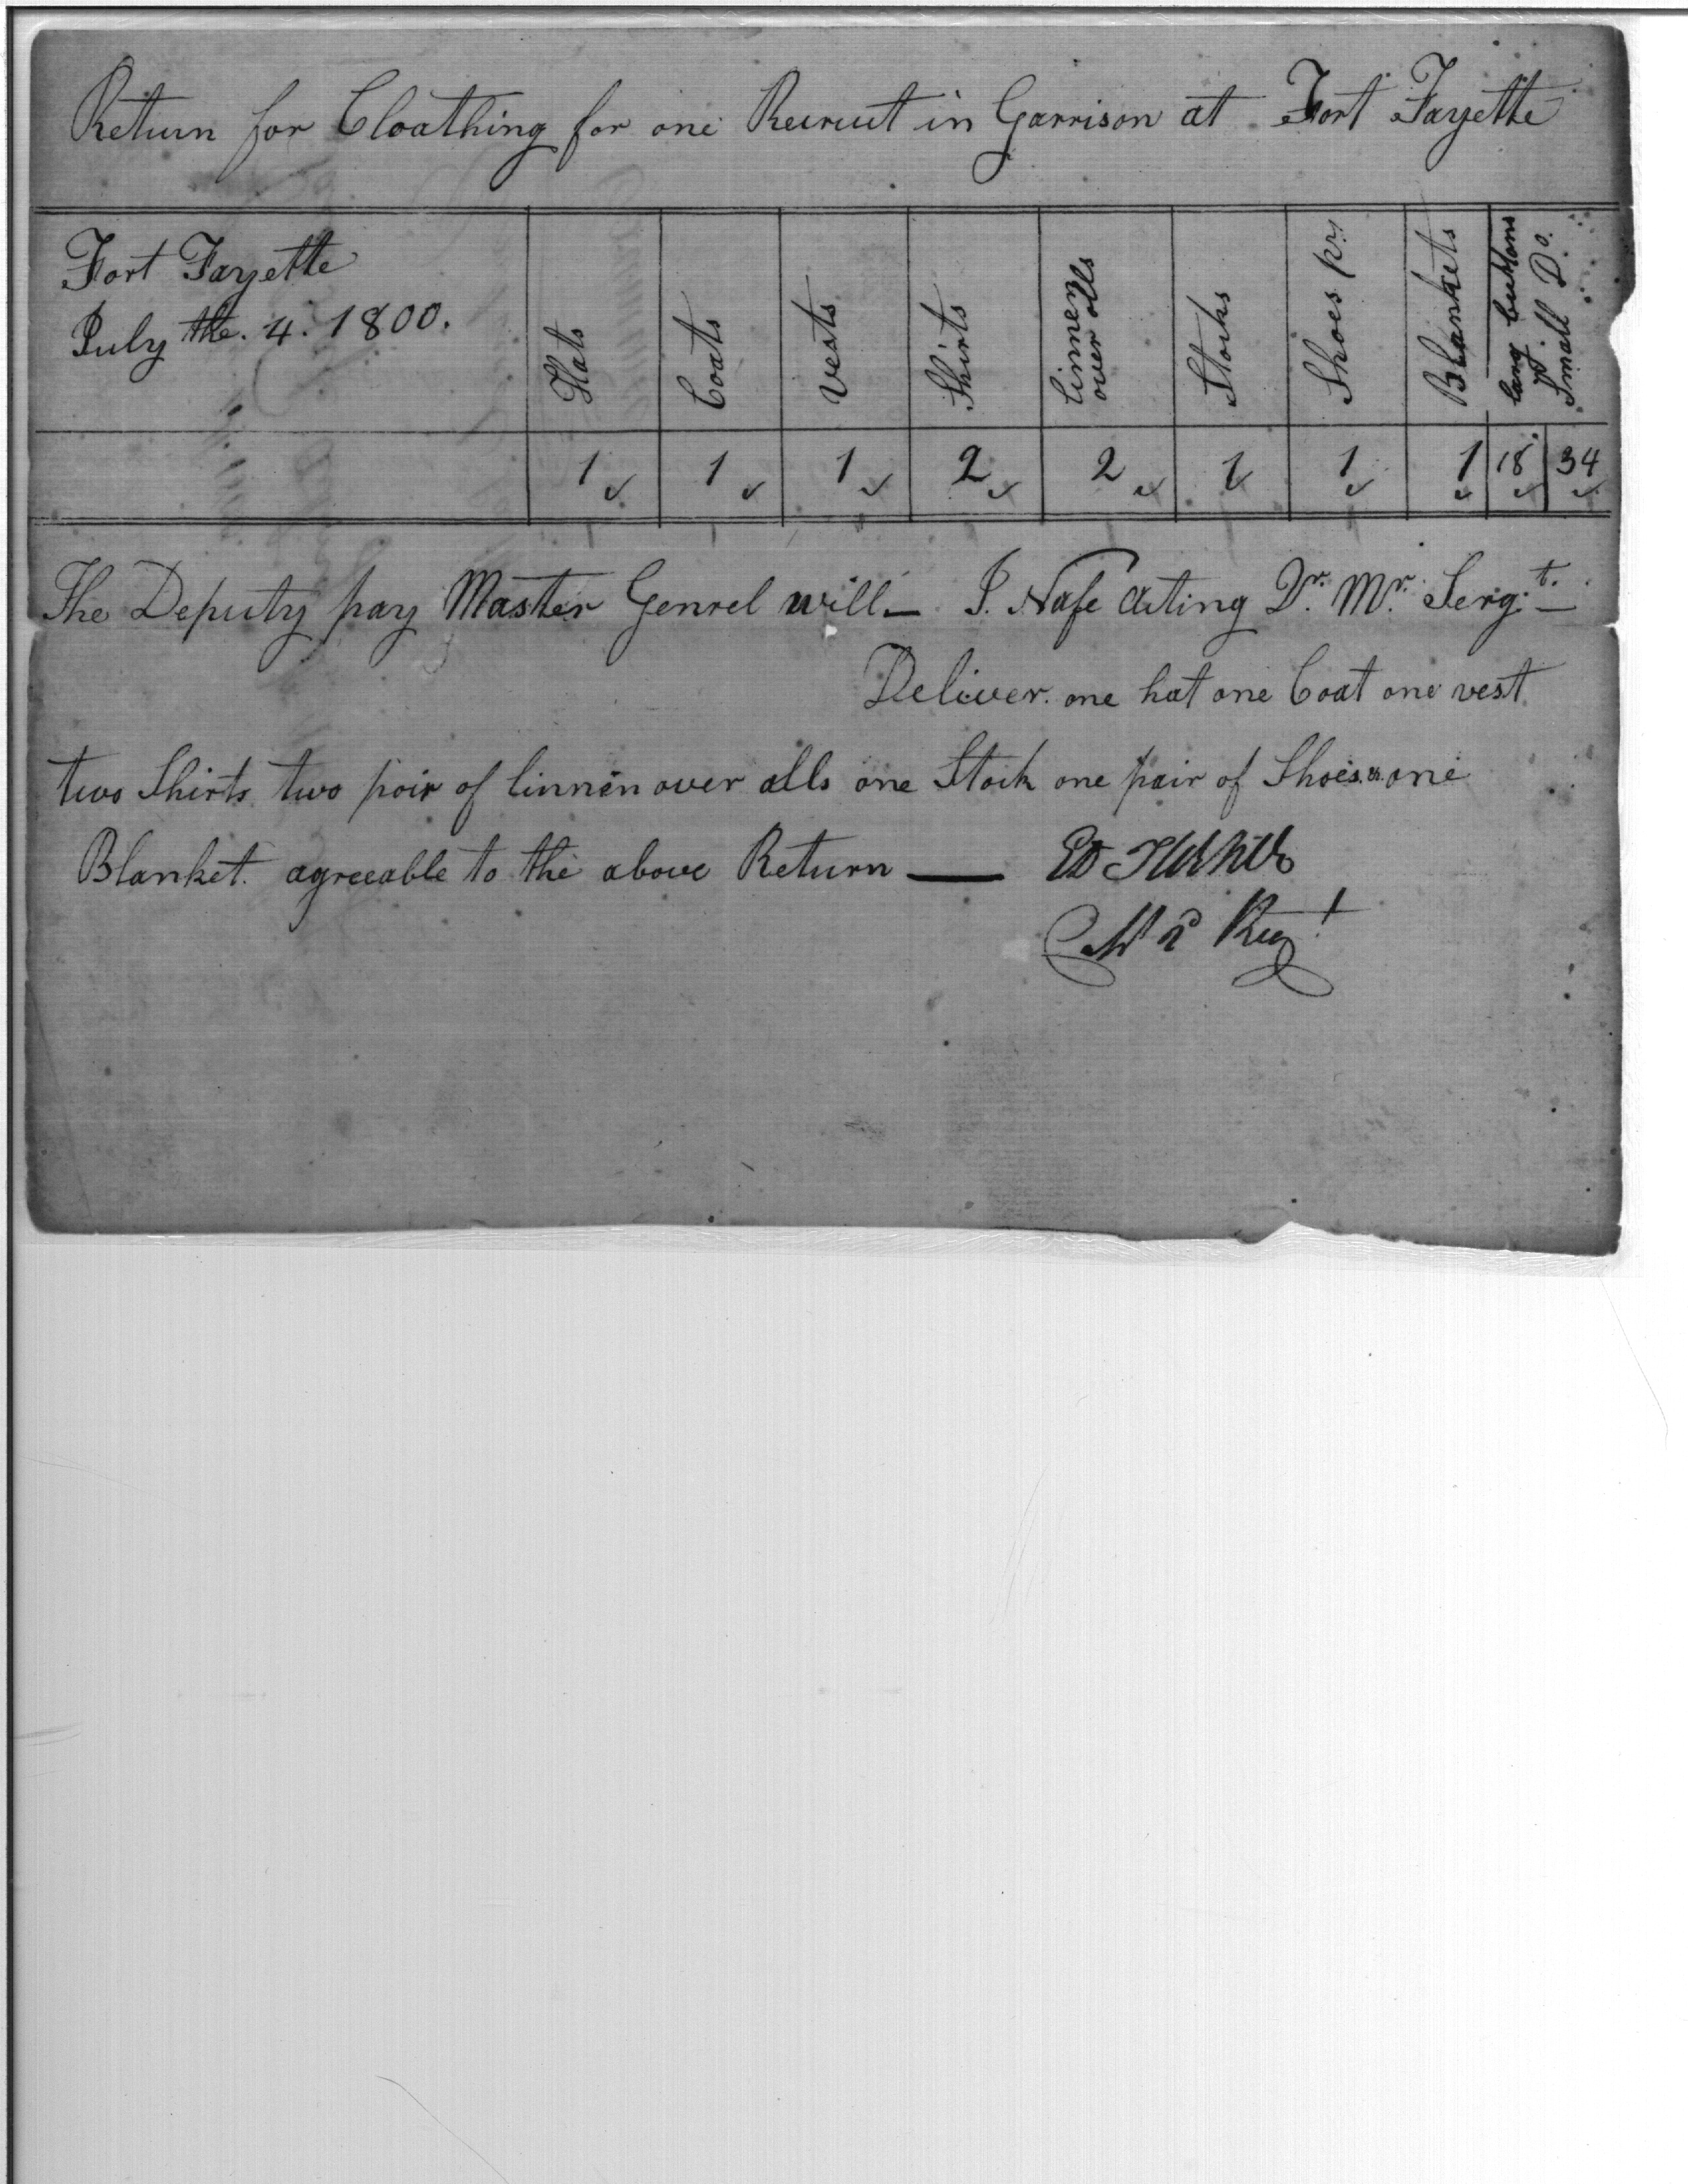 Return for Cloathing for one Recruit in Garrison at Fort Fayette
Fort Fayette
July the. 4. 1800.
Hats
Coats
Vests
Shirts
linnen
over alls
Stocks
Shoes pr.
Blankets
larg buttons
Small Do.
1 1 1 2 2 1 1 1 18 34
The Deputy pay Master Genrel will— J. Nafe Acting Qr. Mr. Sergt.—
Deliver. one hat one Coat one vest
two Shirts two poir of linnen over alls one Stock one pair of Shoes & one
Blanket. agreeable to the above Return —
2d Regt